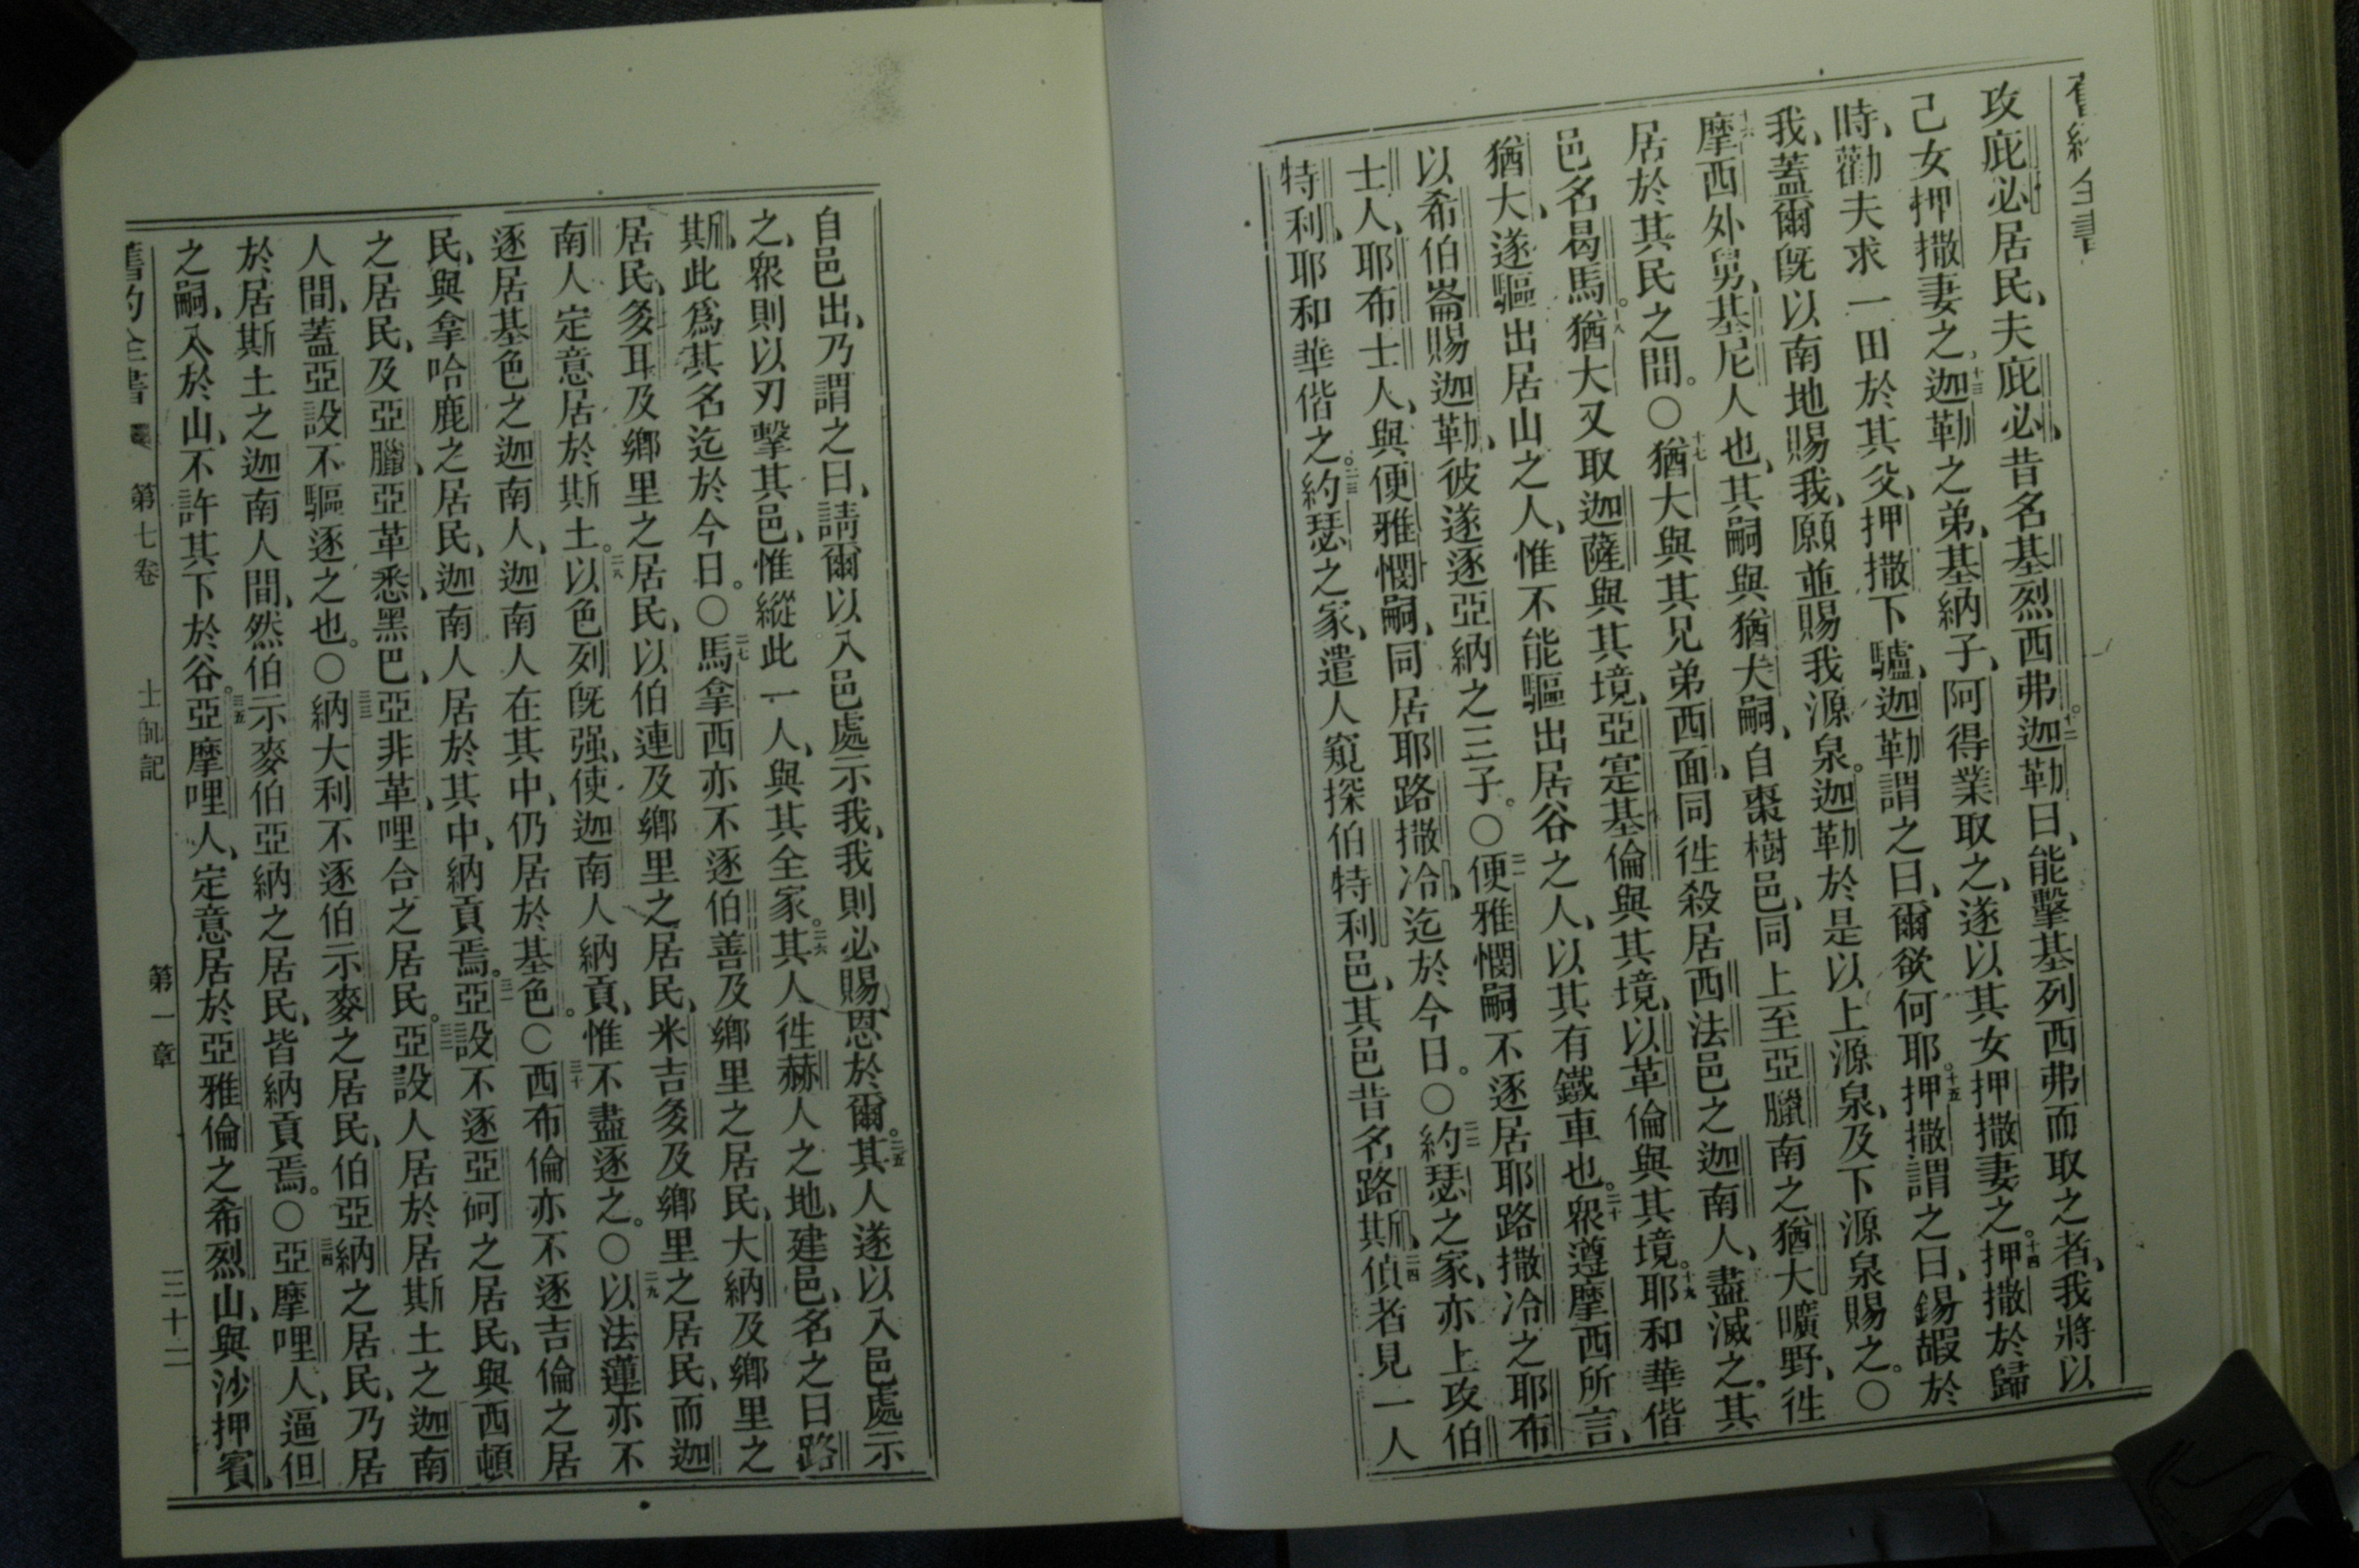 舊約全書
攻庇必居民、夫庇必、昔名基烈西弗。十二迦勒曰、能擊基列西弗而取之者、我將以
己女押撒妻之、十三迦勒之弟、基納子、阿得業取之、遂以其女押撒妻之。十四押撒於歸
時、勸夫求一田於其父、押撒下驢、迦勒謂之曰、爾欲何耶。十五押撒謂之曰、錫嘏於
我、蓋爾旣以南地賜我、願並賜我源泉。迦勒於是以上源泉、及下源泉賜之。〇
十六摩西外舅、基尼人也、其嗣與猶大嗣、自棗樹邑、同上至亞臘南之猶大曠野、徃
居於其民之間。〇十七猶大與其兄弟西面、同徃殺居西法邑之迦南人、盡滅之。其
邑名曷馬。十八猶大又取迦薩與其境、亞寔基倫與其境、以革倫與其境。十九耶和華偕
猶大、遂驅出居山之人、惟不能驅出居谷之人、以其有鐵車也。二十衆遵摩西所言、
以希伯崙賜迦勒、彼遂逐亞納之三子。〇二一便雅憫嗣不逐居耶路撒冷之耶布
士人、耶布士人、與便雅憫嗣、同居耶路撒冷、迄於今日。〇二二約瑟之家、亦上攻伯
特利、耶和華偕之。二三約瑟之家、遣人窺探伯特利邑、其邑昔名路斯、二四偵者見一人
自邑出、乃謂之曰、請爾以入邑處示我、我則必賜恩於爾。二五其人遂以入邑處示
之、衆則以刃擊其邑、惟縱此一人、與其全家。二六其人徃赫人之地、建邑、名之曰路
斯、此爲其名迄於今日。〇二七馬拿西亦不逐伯善及鄉里之居民、大納及鄉里之
居民、多耳及鄉里之居民、以伯連及鄉里之居民、米吉多及鄉里之居民、而迦
南人定意居於斯土。二八以色列旣强、使迦南人納貢、惟不盡逐之。〇二九以法蓮亦不
逐居基色之迦南人、迦南人在其中、仍居於基色。〇三十西布倫亦不逐吉倫之居
民、與拿哈鹿之居民、迦南人居於其中、納貢焉。三一亞設不逐亞砢之居民、與西頓
之居民、及亞臘、亞革悉、黑巴、亞非革、哩合之居民。三二亞設人居於居斯土之迦南
人間、蓋亞設不驅逐之也。〇三三納大利不逐伯示麥之居民、伯亞納之居民、乃居
於居斯土之迦南人間、然伯示麥伯亞納之居民、皆納貢焉。〇三四亞摩哩人、逼但
之嗣、入於山、不許其下於谷。三五亞摩哩人、定意居於亞雅倫之希烈山、與沙押賓、
舊約全書 第七卷 士師記 第一章 三十二